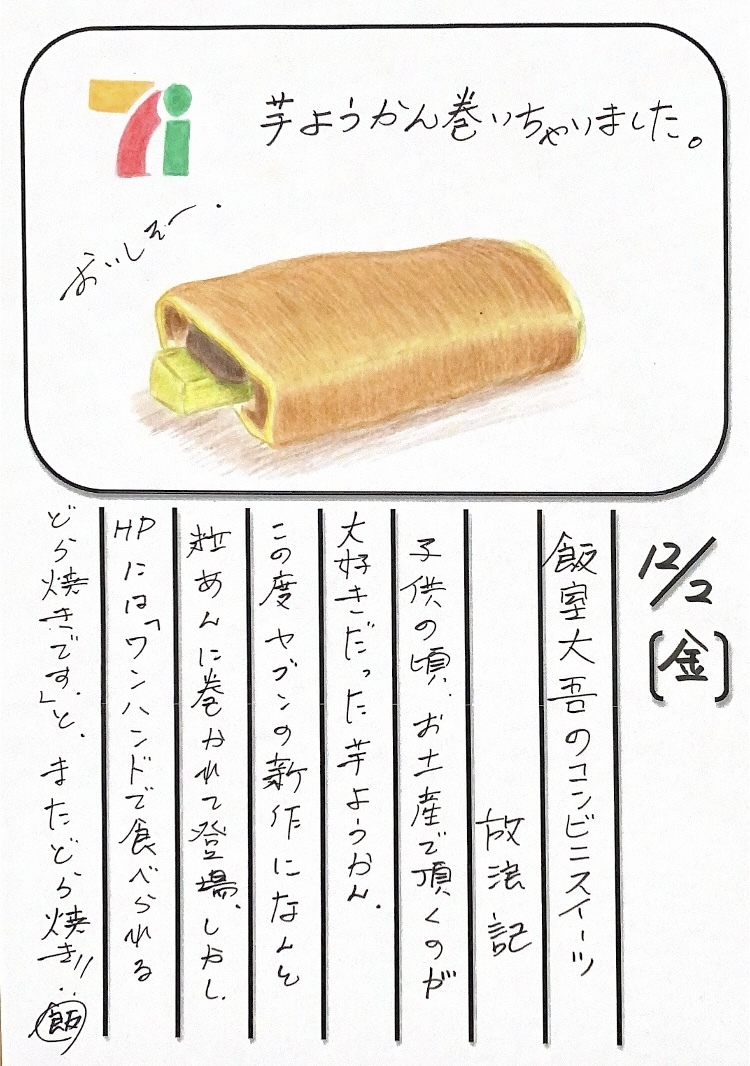 7i
芋ようかん巻いちゃいました。
おいしそー.
12/2
〔金〕
飯室大吾のコンビニスイーツ
放浪記
子供の頃、お土産で頂くのが
大好きだった芋ようかん.
この度セブンの新作になんと
粒あんに巻かれて登場.しかし.
HPには「ワンハンドで食べられる
どら焼きです.」と.またどら焼き!!..
飯